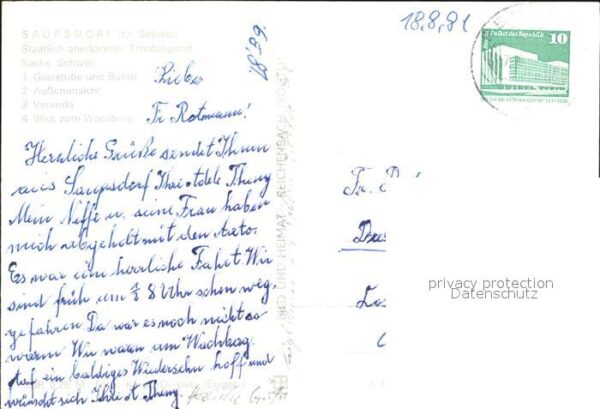 SAUPSDORF (Kr. Sebnitz)
Staatlich anerkannter Erholungsort
Sächs. Schweiz
1 Gaststube und Büfett
2 Außenansicht
3 Veranda
4 Blick zum Wachberg
18,8,81
Berlin, Palast der Republik
10
DEUTSCHE DEMOKRATISCHE REPUBLIK
Liebe
Fr. Rotmann!
Herzliche Grüße sendet Ihnen
aus Saupsdorf Ihre Adele Thung
Mein Neffe u. seine Frau haben
mich abgeholt mit den Auto.
Es war eine herrliche Fahrt. Wir
sind früh um 8 Uhr schon weg.
gefahren. Da war es noch nicht so
warm Wir waren am Wachberg.
Auf ein baldiges Wiedersehn hofft und
wünscht sich Ihre A. Thung.
BILD UND HEIMAT REICHENBACH
Fr.
privacy protection
Datenschutz